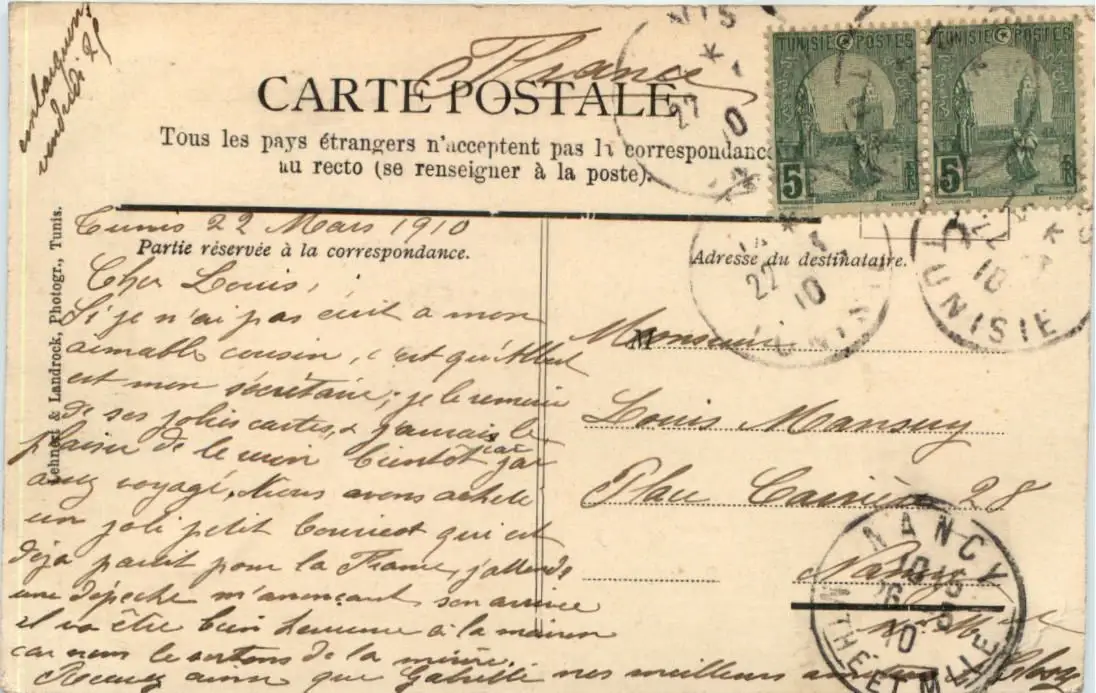 embarquons
vendredi 25
France
CARTE POSTALE
Tous les pays étrangers n'acceptent pas la correspondance
au recto (se renseigner à la poste).
TUNISIE POSTES
5
TUNISIE POSTES
5
Lehnert & Landrock, Photogr., Tunis.
Tunis 22 Mars 1910
Partie réservée à la correspondance.
Cher Louis,
Si je n'ai pas écrit a mon
aimable cousin, c'est qu'Albert
est mon secrétaire; je le remercie
de ses jolies cartes, & j'aurais le
plaisir de le voir bientôt car j'ai
assez voyagé. Nous avons acheté
un joli petit bourricot qui est
déja partit pour la France, j'attends
une dépêche m'anonçant son arrivée
il va être bien heureux à la maison
car nous le sortons de la misère.
Recevez ainsi que Gabrielle nos meilleurs
Adresse du destinataire.
M Monsieur
Louis Mansuy
Place Carrière 28
Nancy
Mthe M
22 3 10
TUNISIE
NANCY
26 3 10
MTHE ET MLLE